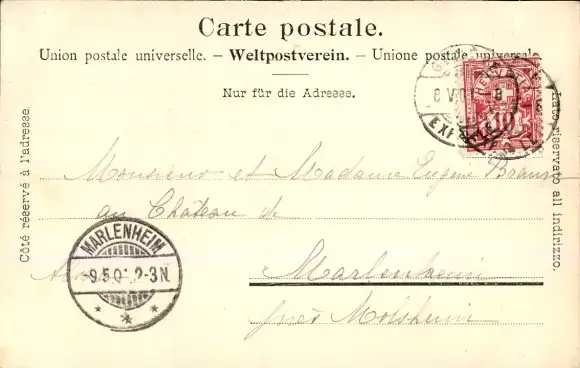 Carte postale.
Union postale universelle. – Weltpostverein. – Unione postale universale
Nur für die Adresse.
Côté réservé à l'adresse.
Lato riservato all indirizzo.
8 V 01 – 8
EXP
Monsieur et Madame Eugène
au Château de
Marlenheim
près Molsheim
MARLENHEIM
-9.5.0 2-3N.